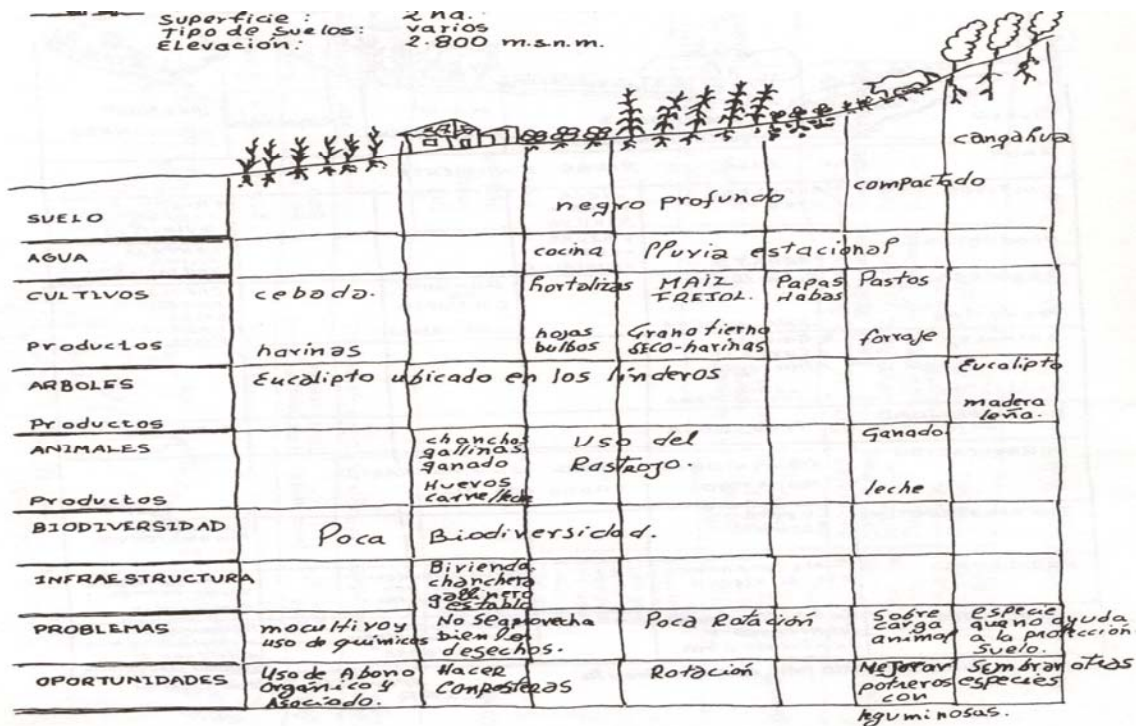 Superficie : 2 ha.
Tipo de suelos: varios
Elevación: 2.800 m.s.n.m.
cangahua
compactado
SUELO negro profundo
AGUA cocina lluvia estacional
CULTIVOS cebada. hortalizas MAIZ FREJOL Papas Habas Pastos
Productos harinas hojas bulbos Grano tierno SECO-harinas forraje
ARBOLES Eucalipto ubicado en los linderos Eucalipto
Productos madera leña.
ANIMALES chanchos gallinas ganado Uso del Rastrojo. Ganado
Productos Huevos carne/leche leche
BIODIVERSIDAD Poca Biodiversidad.
INFRAESTRUCTURA Bivienda chanchera gallinero establo
PROBLEMAS mocultivo y uso de químicos No se aprovecha bien los desechos. Poca Rotación Sobre carga animal especie que no ayuda a la protección suelo.
OPORTUNIDADES Uso de Abono Orgánico y Asociado. Hacer Composteras Rotación Mejorar potreros con leguminosas. Sembrar otras especies